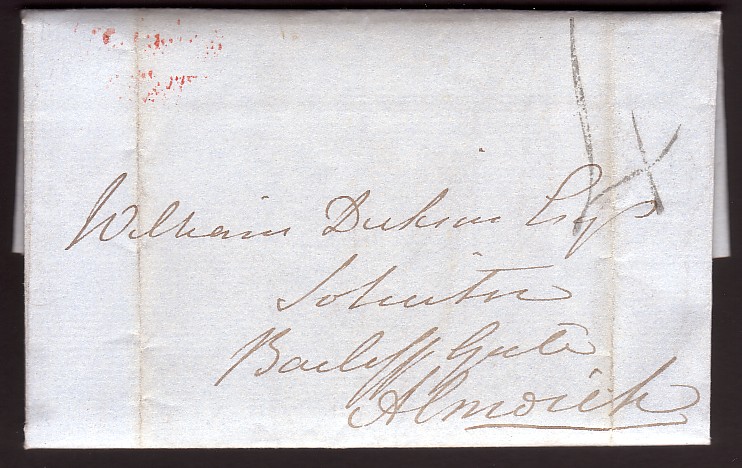 William Dickson Esqr
Solicitor
Bailiff Gate
Alnwick